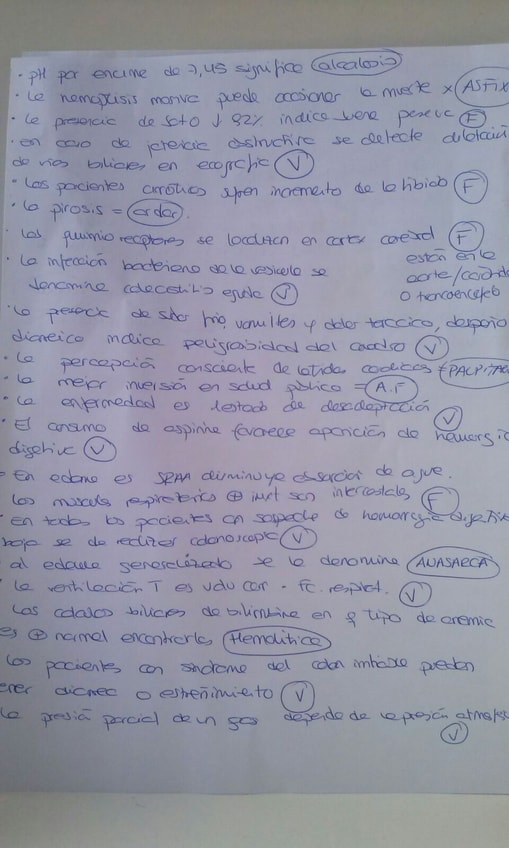 · pH por encima de 7,45 significa alcalosis
· La hemoptisis masiva puede ocasionar la muerte x ASFIX
· La presencia de Sat O ↓ 92% indica buen F
· en caso de ictericia obstructiva se detecta dilatación
de vías biliares en ecografía V
· Los pacientes cirróticos sufren incremento de la libido F
· La pirosis = ardor.
· Los quimiorreceptores se localizan en cortex cerebral F
están en la
aorta/carótida
o troncoencéfalo
· La infección bacteriana de la vesícula se
denomina colecistitis aguda V
· La presencia de sudor frío vómitos y dolor torácico,
diarreico indica peligrosidad del cuadro V
· La percepción consciente de latidos cardiacos = PALPITAC
· La mejor inversión en salud pública = A.F
· La enfermedad es estado de desadaptación V
· El consumo de aspirina favorece aparición de hemorragia
digestiva V
- En edema es disminuye absorción de agua.
· Los músculos respiratorios ⊕ impt son intercostales F
· en todos los pacientes con sospecha de hemorragia digestiva
baja se da realizar colonoscopia V
· al edema generalizado se le denomina ANASARCA
· La ventilación T es volu corr · fc. respirat. V
· Los cálculos biliares de bilirrubina en q tipo de anemia
es ⊕ normal encontrarla Hemolítica
· Los pacientes con síndrome del colon irritable pueden
tener diarrea o estreñimiento V
· La presión parcial de un gas depende de la presión atmosf
V